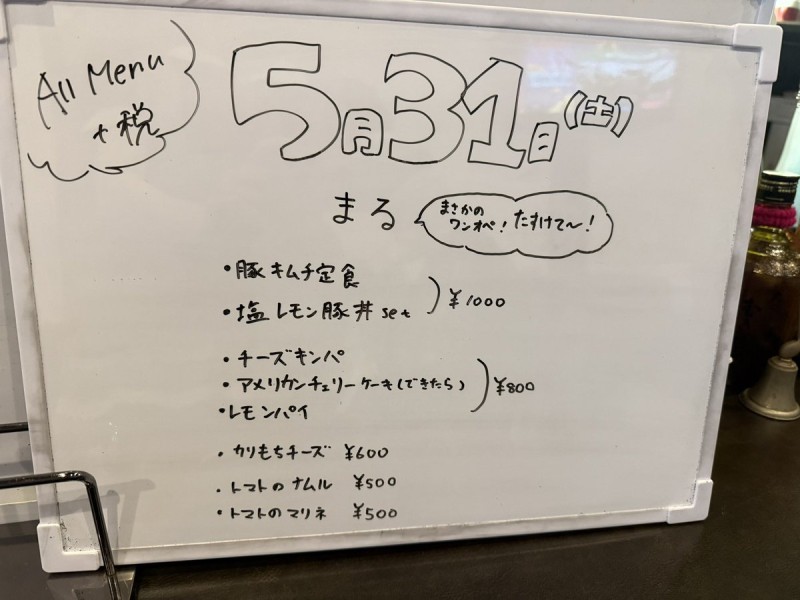 All Menu
+税
5月31日(土)
まる
まさかの
ワンオペ! たすけて〜!
・豚キムチ定食
・塩レモン豚丼set
¥1000
・チーズキンパ
・アメリカンチェリーケーキ(できたら)
・レモンパイ
¥800
・カリもちチーズ ¥600
・トマトのナムル ¥500
・トマトのマリネ ¥500